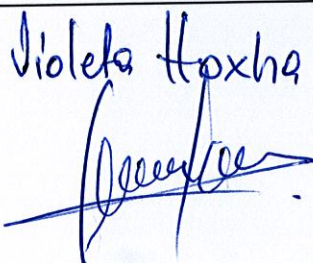 Violeta Hoxha